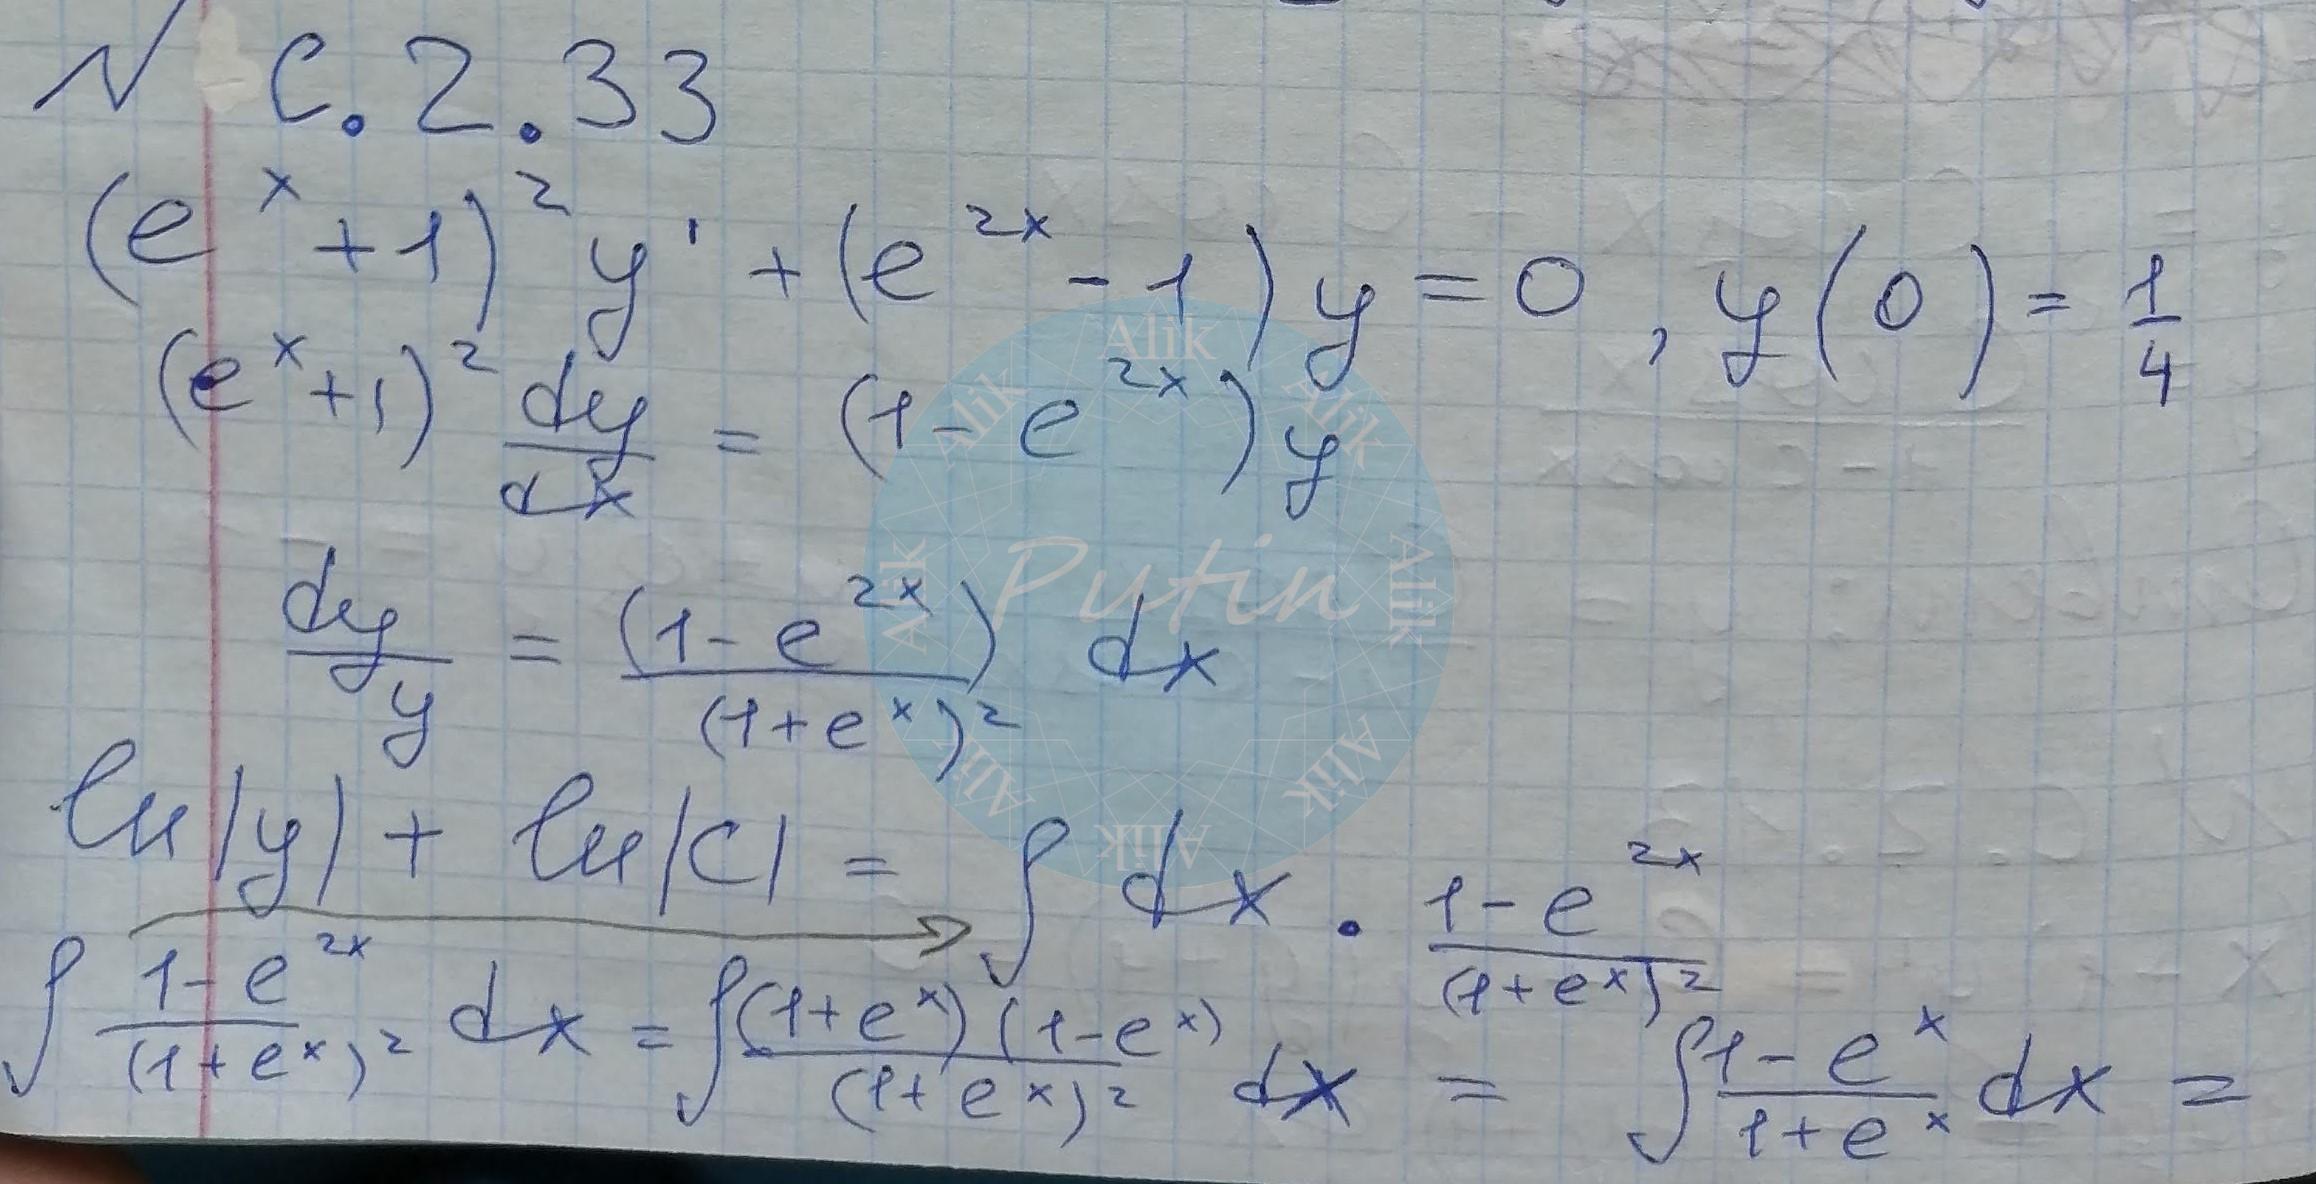 № C.2.33
(e^x+1)^2 y' + (e^{2x}-1) y = 0, y(0) = 1/4
(e^x+1)^2 dy/dx = (1-e^{2x}) y
dy/y = (1-e^{2x})/(1+e^x)^2 dx
ln|y| + ln|C| = ∫ dx · 1-e^{2x}/(1+e^x)^2
∫ 1-e^{2x}/(1+e^x)^2 dx = ∫ (1+e^x)(1-e^x)/(1+e^x)^2 dx = ∫ 1-e^x/1+e^x dx =
Alik
Alik
Alik
Alik
Putin
Alik
Alik
Alik
Alik